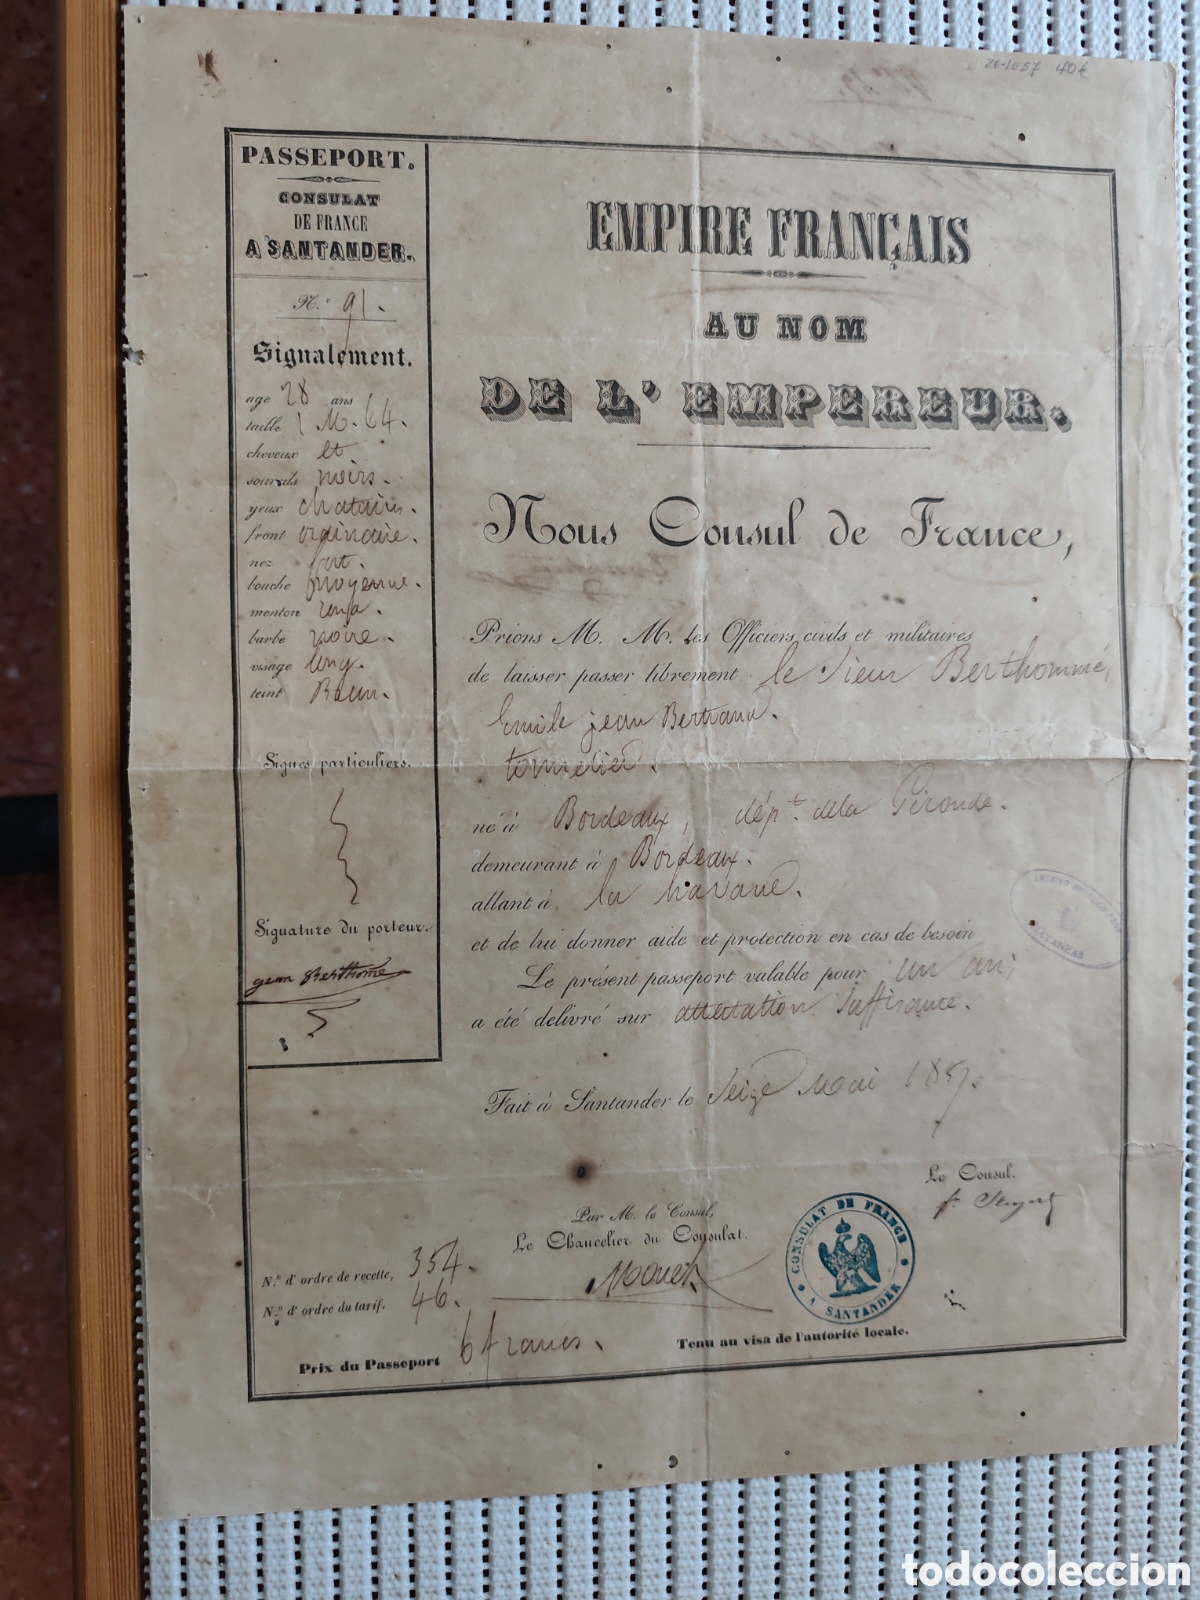 26-1057 40€
PASSEPORT.
CONSULAT
DE FRANCE
A SANTANDER.
N.° 91.
Signalement.
age 28 ans
taille 1 M. 64.
cheveux et
sourcils noirs.
yeux chatains.
front ordinaire.
nez fort.
bouche moyenne.
menton rond.
barbe noire.
visage long.
teint Brun.
Signes particuliers.
Signature du porteur.
jean Berthomé
EMPIRE FRANÇAIS
AU NOM
DE L'EMPEREUR.
Nous Consul de France,
Prions M. M. les Officiers civils et militaires
de laisser passer librement le Sieur Berthommé,
Emile jean Bertrand.
tonnelier.
né à Bordeaux, dép.t de la Gironde.
demeurant à Bordeaux.
allant à la havane.
et de lui donner aide et protection en cas de besoin
Le présent passeport valable pour un an;
a été délivré sur attestation suffisante.
Fait à Santander le Seize Mai 1857.
Le Consul.
Par M. le Consul,
Le Chancelier du Consulat.
CONSULAT DE FRANCE
A SANTANDER
MATANZAS
N.° d'ordre de recette, 354.
N.° d'ordre du tarif. 46.
Prix du Passeport 6 francs.
Tenu au visa de l'autorité locale.
todocoleccion